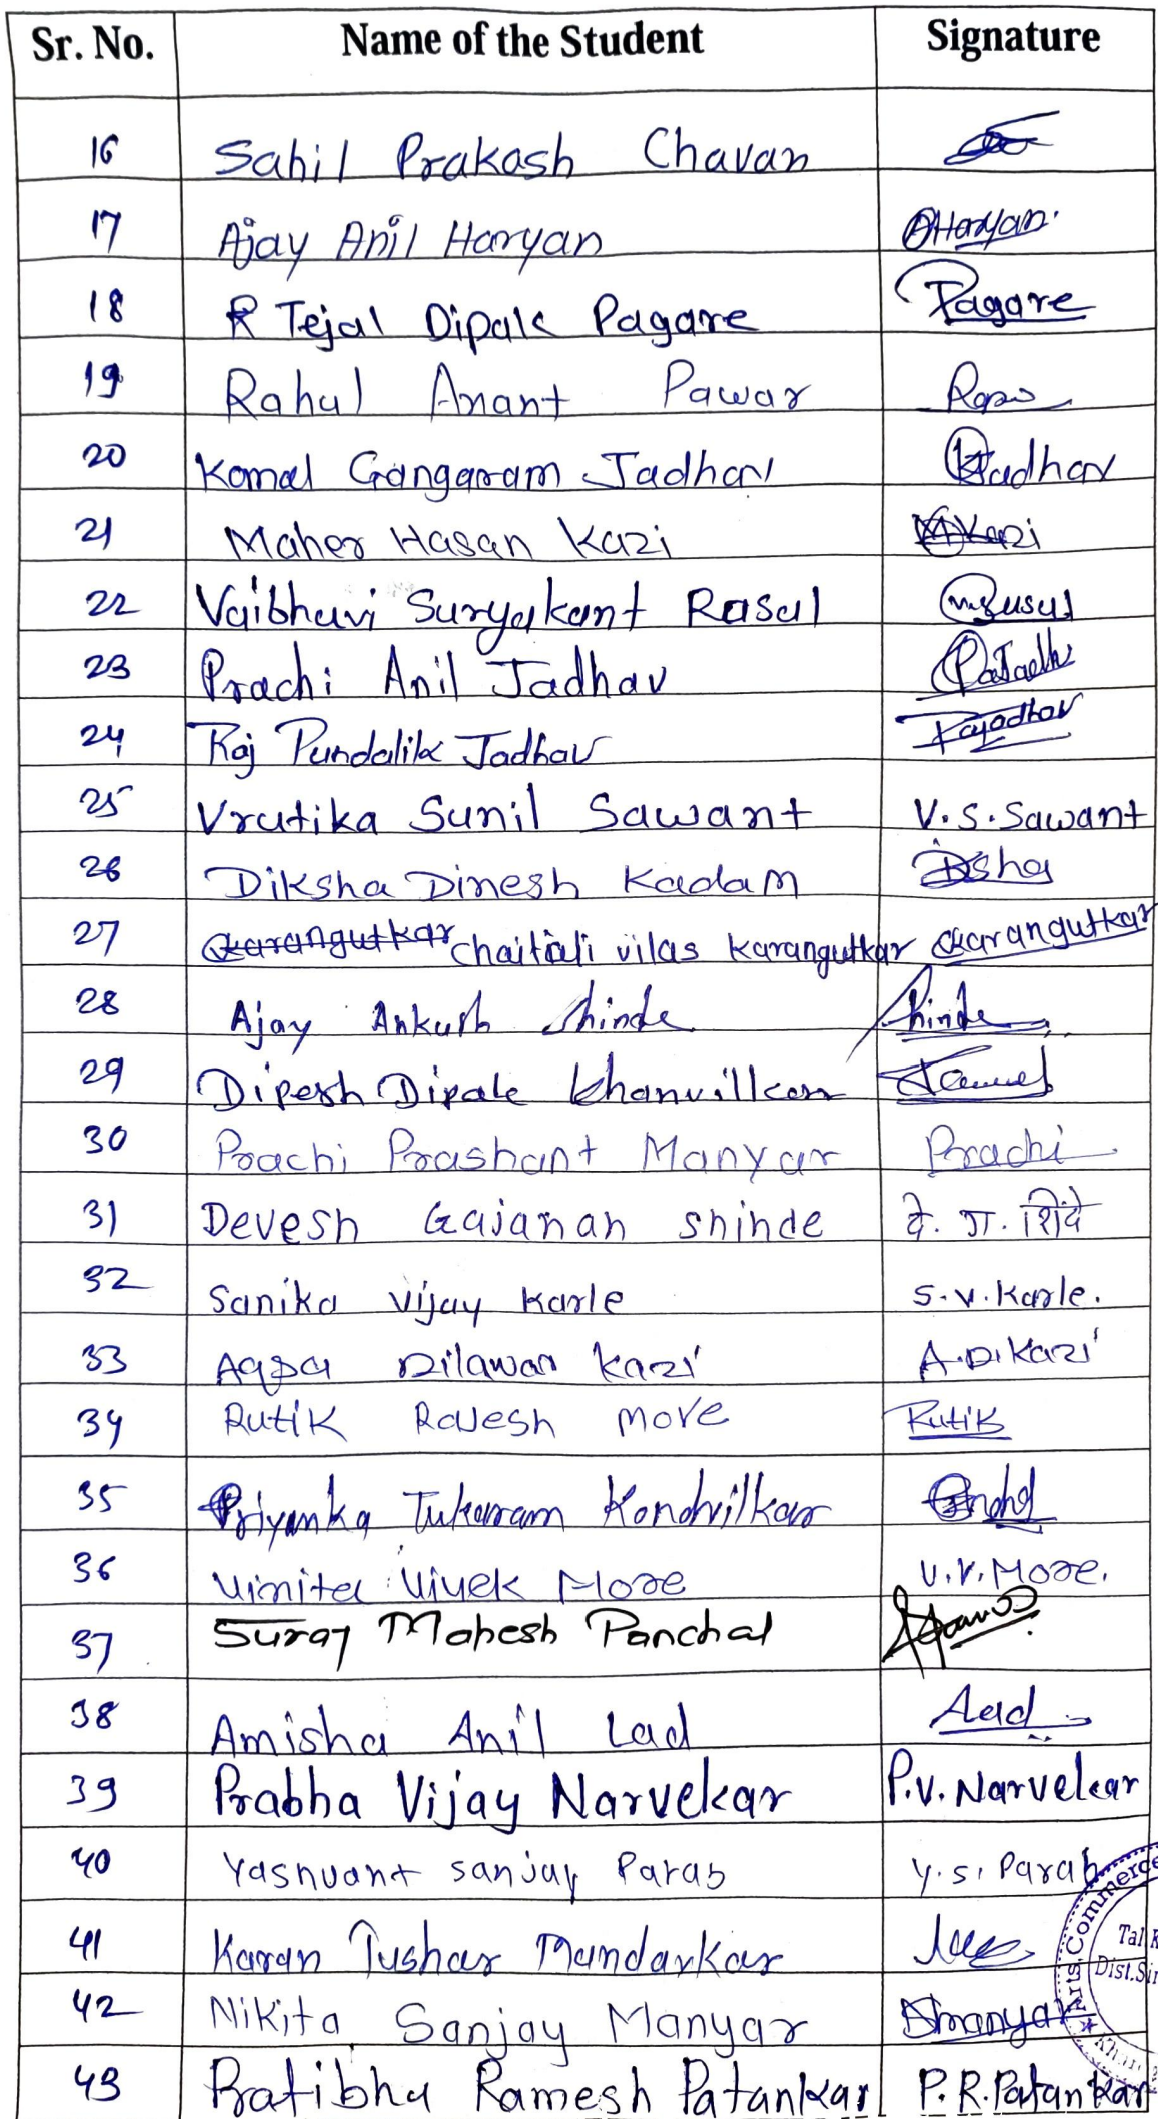 Sr. No. Name of the Student Signature
16 Sahil Prakash Chavan
17 Ajay Anil Haryan AHaryan.
18 Tejal Dipak Pagare Pagare
19 Rahul Anant Pawar
20 Komal Gangaram Jadhav KJadhav
21 Maher Hasan Kazi MKazi
22 Vaibhavi Suryakant Rasal
23 Prachi Anil Jadhav
24 Raj Pundalik Jadhav
25 Vrutika Sunil Sawant V.S.Sawant
26 Diksha Dinesh Kadam
27 Karangutkar chaitali vilas karangutkar Karangutkar
28 Ajay Ankush Shinde Shinde
29 Dipesh Dipak Khanvilkar
30 Prachi Prashant Manyar Prachi
31 Devesh Gajanan shinde दे. ग. शिंदे
32 Sanika vijay Karle S.v.Karle.
33 Aqsa Dilawar kazi A.D.Kazi
34 Rutik Rajesh more Rutik
35 Priyanka Tukaram Kondvilkar
36 Vinita Vivek More V.V.More.
37 Suraj Mahesh Panchal
38 Amisha Anil Lad ALad
39 Prabha Vijay Narvekar P.V.Narvekar
40 Yashvant sanjay Parab Y.S.Parab
41 Karan Tushar Mundarkar
42 Nikita Sanjay Manyar
43 Pratibha Ramesh Patankar P.R.Patankar
Arts, Commerce
Tal
Dist.